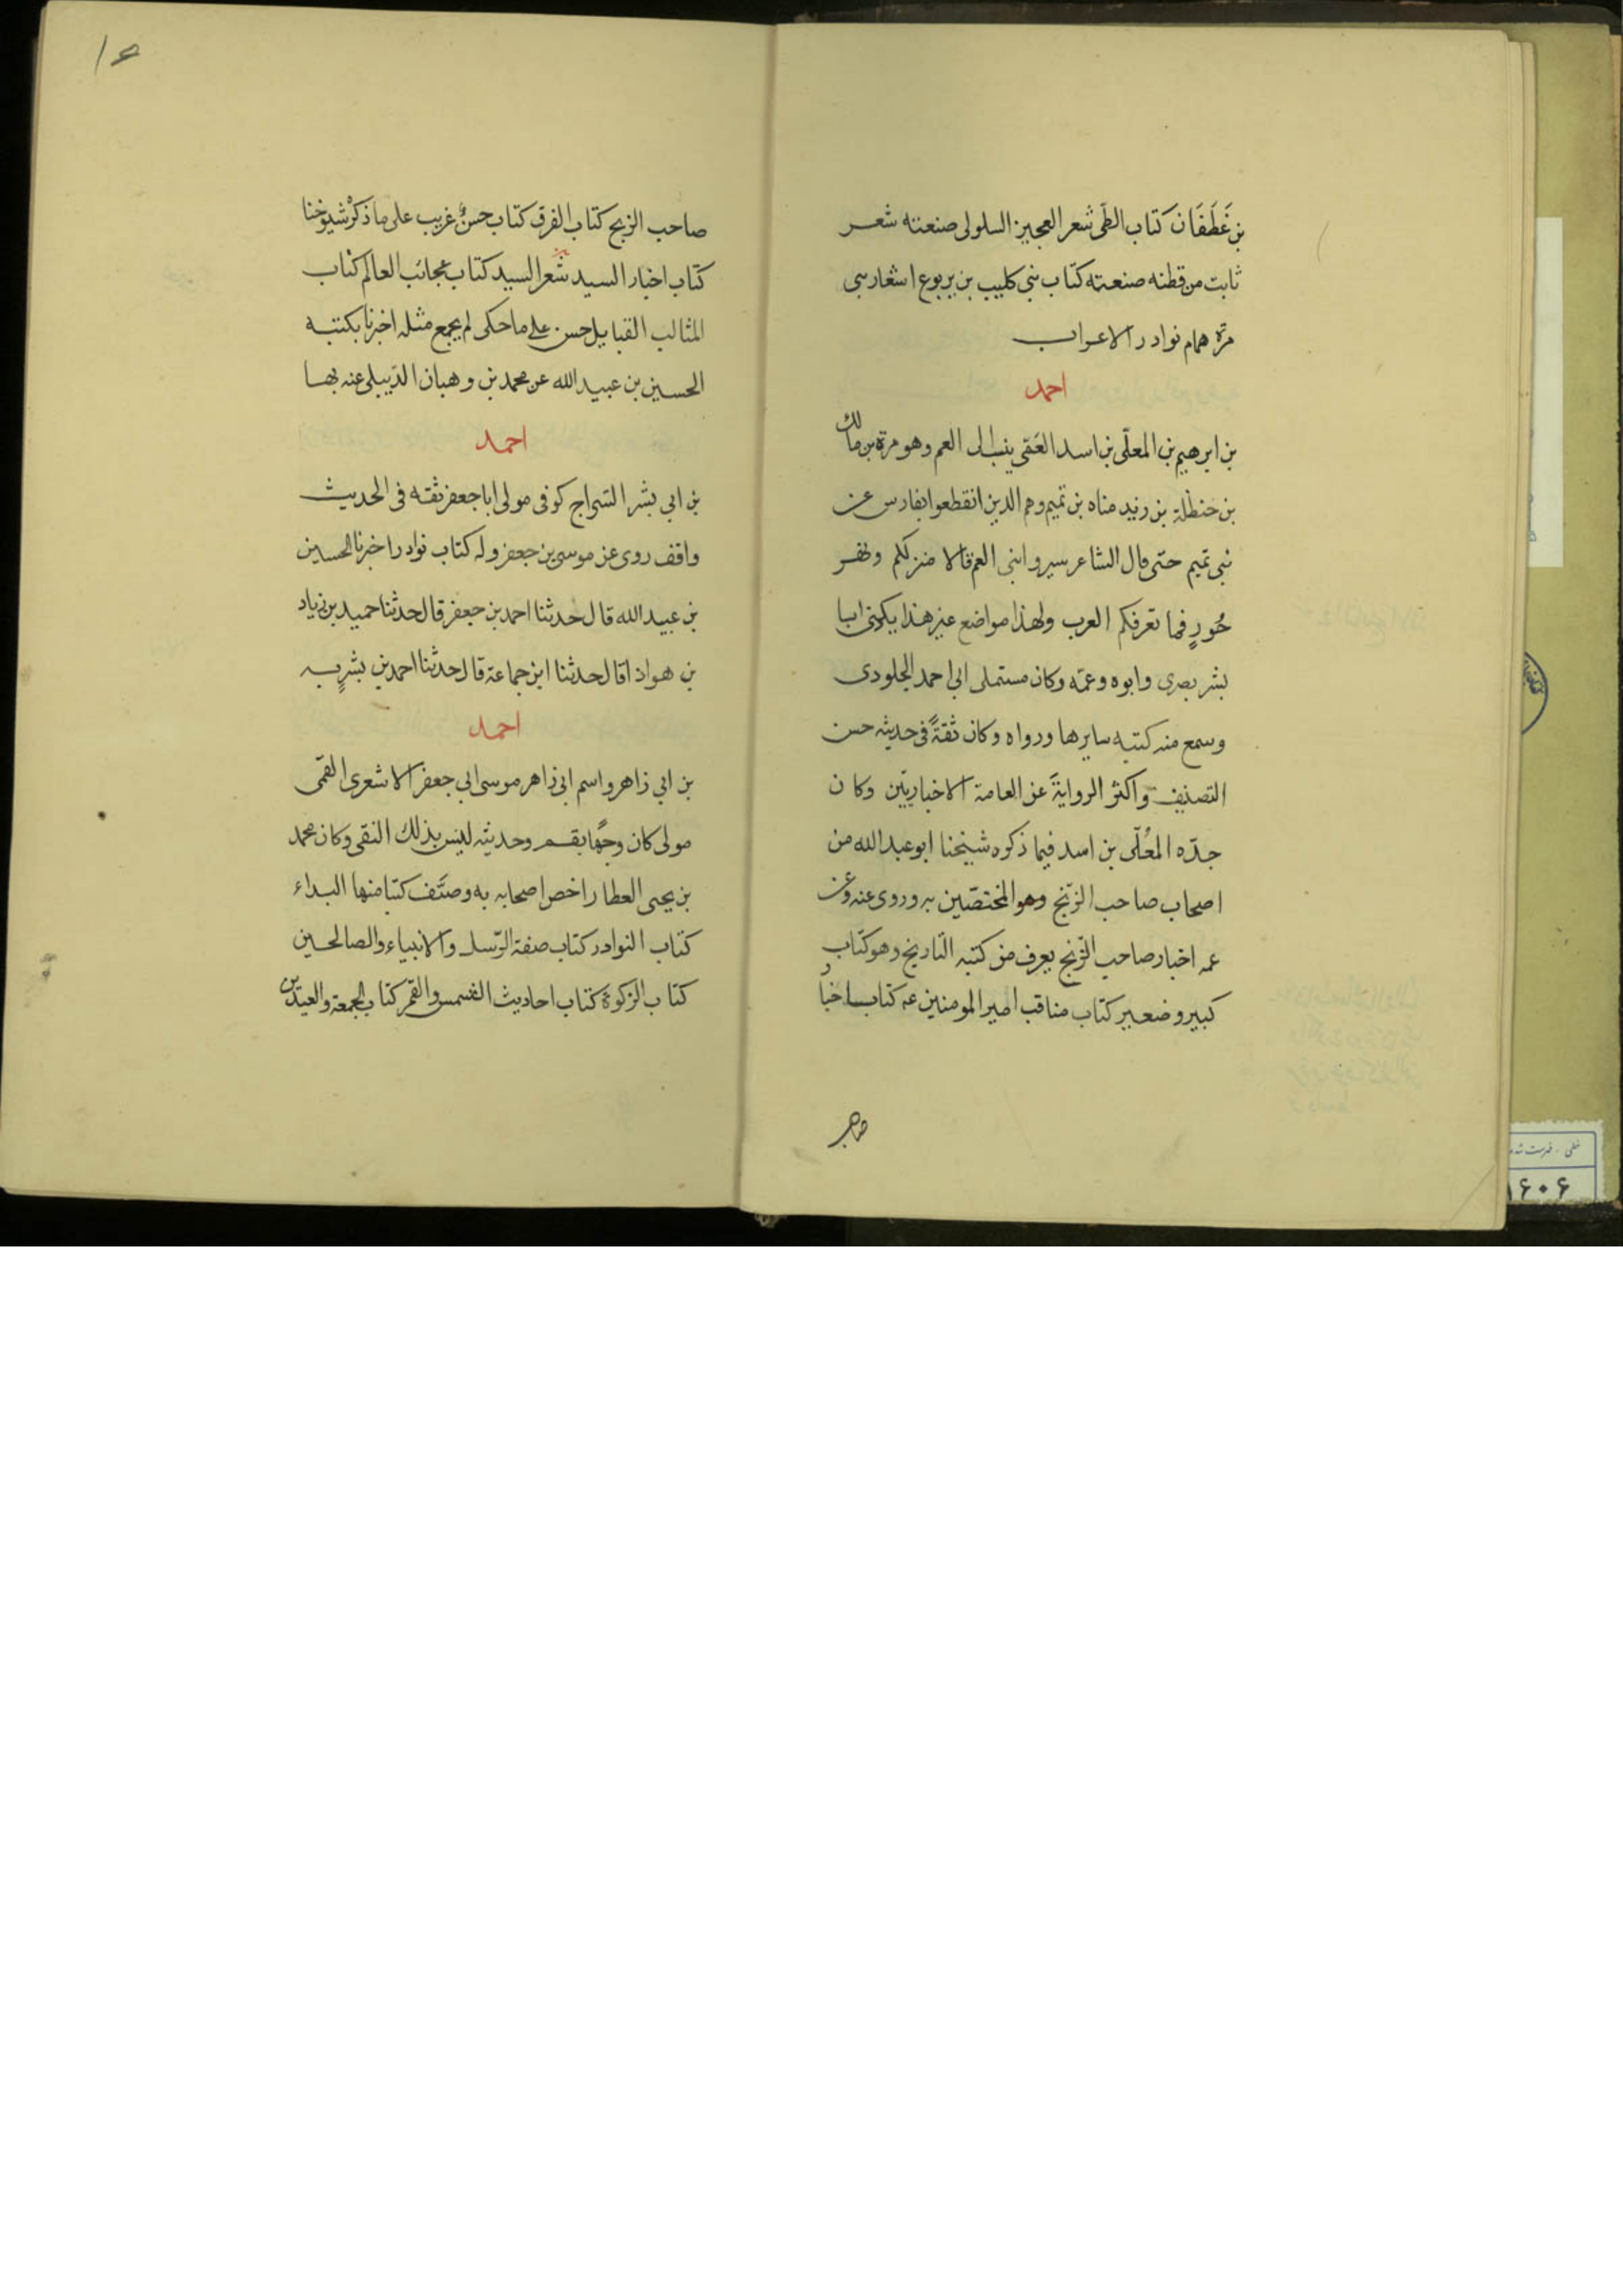 بن غَطَفَان كتاب الطى شعر العجيز السلولى صنعته شعر
ثابت من قطنه صنعته كتاب بنى كليب بن يربوع اشعار بنى
مرة همام نوادر الاعراب
احمد
بن ابرهيم بن المعلّى بن اسد العَمّى ينسب الى العم وهو مرة بن مالك
بن حنظلة بن زيد مناه بن تميم وهم الدين انقطعوا بفارس عن
بنى تميم حتى قال الشاعر سيروا بنى العم فالا منزلكم ونهر
حُورٍ فما تعرفكم العرب ولهذا مواضع غير هذا يكنى ابا
بشر بصرى وابوه وعمّه وكان مستملى ابى احمد الجلودى
وسمع منه كتبه سايرها ورواه وكان ثقةً فى حديثه حسن
التصنيف واكثر الروايةَ عن العامة الاخباريّين وكان
جدّه المُعلّى بن اسد فيما ذكره شيخنا ابو عبد الله من
اصحاب صاحب الزّنج وهو المختصّين به وروى عنه وعن
عمه اخبار صاحب الزّنج يعرف من كتبه التاريخ وهو كتاب
كبير وضعير كتاب مناقب امير المومنين عه كتاب اخبار
صاحب
١٦
صاحب الزنج كتاب الفرق كتاب حسنٌ غريب على ما ذكره شيوخنا
كتاب اخبار السيد شعر السيد كتاب عجائب العالم كتاب
المثالب القبايل حسن على ما حكى لم يجمع مثله اخبرنا بكتبه
الحسين بن عبيد الله عن محمد بن وهبان الدّبيلى عنه بها
احمد
بن ابي بشر السّراج كوفى مولى ابا جعفر ثقه فى الحديث
واقف روى عن موسى بن جعفر وله كتاب نوادر اخبرنا الحسين
بن عبيد الله قال حدثنا احمد بن جعفر قال حدثنا حميد بن زياد
بن هواذا قال حدثنا ابن جماعة قال حدثنا احمد بن بشرٍ به
احمد
بن ابي زاهر واسم ابى زاهر موسى ابي جعفر الاشعرى القمّى
مولى كان وجهًا بقم وحديثه ليس بذلك النقى وكان محمد
بن يحيى العطار اخص اصحابه به وصنّف كتبا منها البداء
كتاب النوادر كتاب صفة الرّسل والانبياء والصالحين
كتاب الزكوة كتاب احاديث الشمس والقمر كتاب الجمعة والعيدين
خطى . فهرست شده
۱۶۰۶